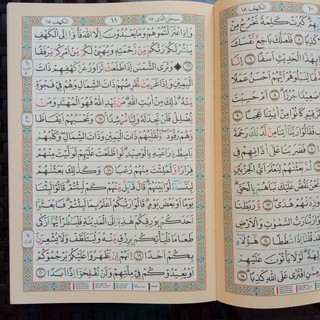 الكهف ١٨
١١
سبحن الذي ١٥
وَإِذِ اعْتَزَلْتُمُوهُمْ وَمَا يَعْبُدُونَ إِلَّا اللَّهَ فَأْوُۥٓا إِلَى الْكَهْفِ
يَنْشُرْ لَكُمْ رَبُّكُمْ مِنْ رَحْمَتِهِ وَيُهَيِّئْ لَكُمْ مِنْ أَمْرِكُمْ مِرْفَقًا
﴿١٦﴾ وَتَرَى الشَّمْسَ إِذَا طَلَعَتْ تَزَاوَرُ عَنْ كَهْفِهِمْ ذَاتَ
الْيَمِينِ وَإِذَا غَرَبَتْ تَقْرِضُهُمْ ذَاتَ الشِّمَالِ وَهُمْ فِي فَجْوَةٍ
مِنْهُ ذَٰلِكَ مِنْ آيَاتِ اللَّهِ مَنْ يَهْدِ اللَّهُ فَهُوَ الْمُهْتَدِ وَمَنْ
يُضْلِلْ فَلَنْ تَجِدَ لَهُ وَلِيًّا مُرْشِدًا ﴿١٧﴾ وَتَحْسَبُهُمْ أَيْقَاظًا
وَهُمْ رُقُودٌ وَنُقَلِّبُهُمْ ذَاتَ الْيَمِينِ وَذَاتَ الشِّمَالِ وَكَلْبُهُمْ
بَاسِطٌ ذِرَاعَيْهِ بِالْوَصِيدِ لَوِ اطَّلَعْتَ عَلَيْهِمْ لَوَلَّيْتَ مِنْهُمْ
فِرَارًا وَلَمُلِئْتَ مِنْهُمْ رُعْبًا ﴿١٨﴾ وَكَذَٰلِكَ بَعَثْنَاهُمْ
لِيَتَسَاءَلُوا بَيْنَهُمْ قَالَ قَائِلٌ مِنْهُمْ كَمْ لَبِثْتُمْ قَالُوا لَبِثْنَا
يَوْمًا أَوْ بَعْضَ يَوْمٍ قَالُوا رَبُّكُمْ أَعْلَمُ بِمَا لَبِثْتُمْ فَابْعَثُوا
أَحَدَكُمْ بِوَرِقِكُمْ هَٰذِهِ إِلَى الْمَدِينَةِ فَلْيَنْظُرْ أَيُّهَا أَزْكَىٰ
طَعَامًا فَلْيَأْتِكُمْ بِرِزْقٍ مِنْهُ وَلْيَتَلَطَّفْ وَلَا يُشْعِرَنَّ
بِكُمْ أَحَدًا ﴿١٩﴾ إِنَّهُمْ إِنْ يَظْهَرُوا عَلَيْكُمْ يَرْجُمُوكُمْ
أَوْ يُعِيدُوكُمْ فِي مِلَّتِهِمْ وَلَنْ تُفْلِحُوا إِذًا أَبَدًا ﴿٢٠﴾
١٠
الكهف ١٨
كَبُرَتْ كَلِمَةً تَخْرُجُ
فَلَعَلَّكَ بَاخِعٌ نَفْسَكَ
الْحَدِيثِ أَسَفًا
لِنَبْلُوَهُمْ أَيُّهُمْ أَحْسَنُ عَمَلًا
صَعِيدًا جُرُزًا ﴿٨﴾ أَمْ حَسِبْتَ
فَقَالُوا رَبَّنَا آتِنَا مِنْ لَدُنْكَ رَحْمَةً
فَضَرَبْنَا عَلَىٰ آذَانِهِمْ فِي
بَعَثْنَاهُمْ لِنَعْلَمَ أَيُّ الْحِزْبَيْنِ
نَحْنُ نَقُصُّ عَلَيْكَ نَبَأَهُمْ بِالْحَقِّ
وَرَبَطْنَا
رَبُّنَا رَبُّ السَّمَاوَاتِ وَالْأَرْضِ
قَدْ قُلْنَا إِذًا شَطَطًا
لَوْلَا يَأْتُونَ عَلَيْهِمْ
مِمَّنِ افْتَرَىٰ عَلَى اللَّهِ كَذِبًا